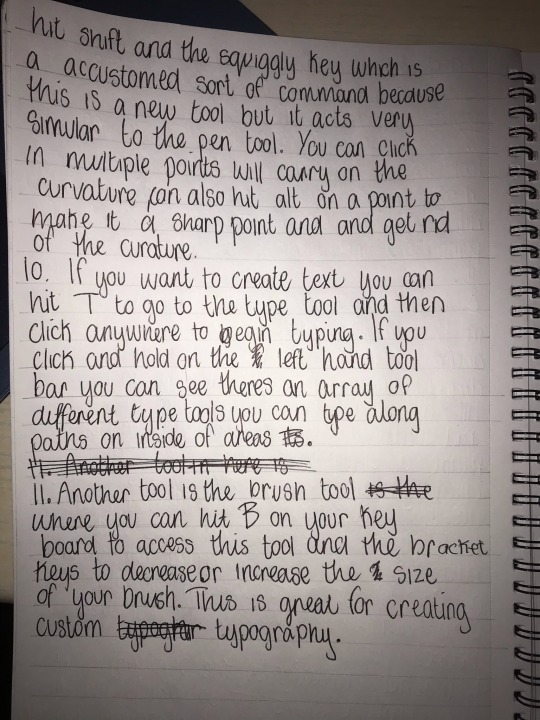 hit shift and the squiggly key which is
a accustomed sort of command because
this is a new tool but it acts very
simular to the pen tool. You can click
in multiple points will carry on the
curvature can also hit alt on a point to
make it a sharp point and and get rid
of the curature.
10. If you want to create text you can
hit T to go to the type tool and then
click anywhere to begin typing. If you
click and hold on the left hand tool
bar you can see theres an array of
different type tools you can type along
paths on inside of areas.
11. Another tool in here is
11. Another tool is the brush tool is the
where you can hit B on your key
board to access this tool and the bracket
keys to decrease or increase the size
of your brush. This is great for creating
custom typography.